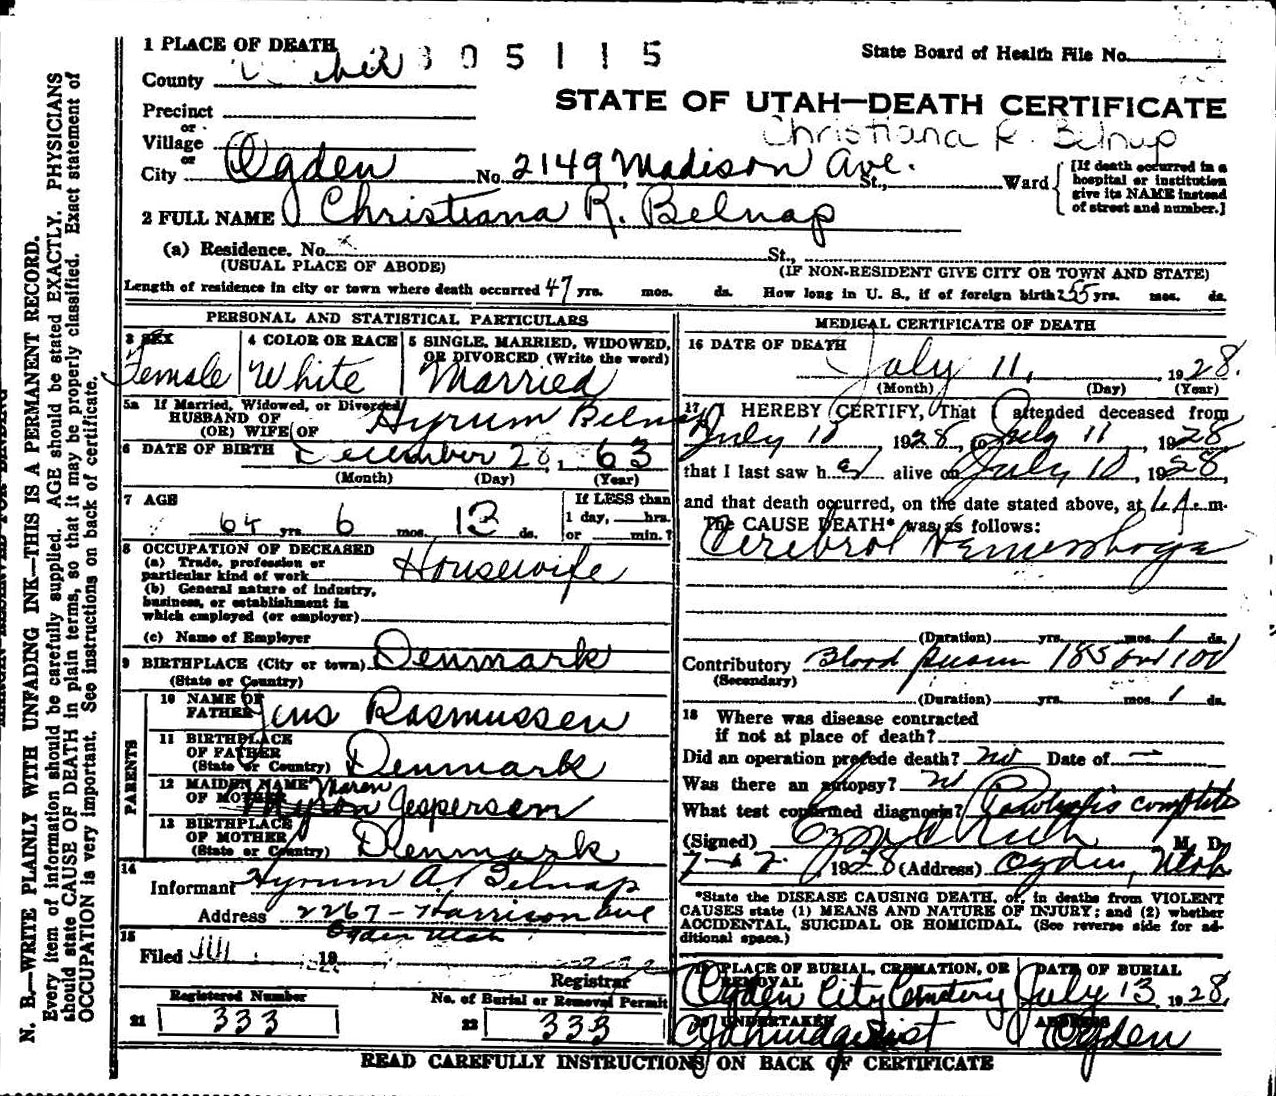 1 PLACE OF DEATH 305115
State Board of Health File No.
County Weber
STATE OF UTAH—DEATH CERTIFICATE
Precinct
or
Christiana R. Belnap
Village
or
City Ogden No. 2149 Madison Ave. St., Ward
[If death occurred in a
hospital or institution
give its NAME instead
of street and number.]
2 FULL NAME Christiana R. Belnap
(a) Residence. No. x St.,
(USUAL PLACE OF ABODE) (IF NON-RESIDENT GIVE CITY OR TOWN AND STATE)
Length of residence in city or town where death occurred 47 yrs. mos. ds. How long in U. S., if of foreign birth? 55 yrs. mos. ds.
PERSONAL AND STATISTICAL PARTICULARS
3 SEX
Female
4 COLOR OR RACE
White
5 SINGLE, MARRIED, WIDOWED,
OR DIVORCED (Write the word)
Married
5a If Married, Widowed, or Divorced
HUSBAND OF
(OR) WIFE OF Hyrum Belnap
6 DATE OF BIRTH December 28, 63
(Month) (Day) (Year)
7 AGE
64 yrs. 6 mos. 13 ds.
If LESS than
1 day, hrs.
or min.?
8 OCCUPATION OF DECEASED
(a) Trade, profession or
particular kind of work Housewife
(b) General nature of industry,
business, or establishment in
which employed (or employer)
(c) Name of Employer
9 BIRTHPLACE (City or town) Denmark
(State or Country)
PARENTS
10 NAME OF
FATHER Jens Rasmussen
11 BIRTHPLACE
OF FATHER
(State or Country) Denmark
12 MAIDEN NAME Maren
OF MOTHER Jespersen
13 BIRTHPLACE
OF MOTHER
(State or Country) Denmark
14
Informant Hyrum A. Belnap
Address 2267 - Harrison Ave
Ogden Utah
15
Filed JUL 19
Registrar
Registered Number
21 333
No. of Burial or Removal Permit
22 333
MEDICAL CERTIFICATE OF DEATH
16 DATE OF DEATH
July 11, 1928.
(Month) (Day) (Year)
17 I HEREBY CERTIFY, That I attended deceased from
July 10 1928, to July 11 1928
that I last saw her alive on July 10, 1928,
and that death occurred, on the date stated above, at 6 A.m.
The CAUSE DEATH* was as follows:
Cerebral Hemorrhage
(Duration) yrs. mos. 1 ds.
Contributory Blood pressure 185 over 100
(Secondary)
(Duration) yrs. mos. 1 ds.
18 Where was disease contracted
if not at place of death?
Did an operation precede death? no Date of —
Was there an autopsy? no
What test confirmed diagnosis? Paralysis complete
(Signed) M. D.
7-12 1928 (Address) Ogden, Utah
*State the DISEASE CAUSING DEATH, or, in deaths from VIOLENT
CAUSES state (1) MEANS AND NATURE OF INJURY; and (2) whether
ACCIDENTAL, SUICIDAL OR HOMICIDAL. (See reverse side for ad-
ditional space.)
19 PLACE OF BURIAL, CREMATION, OR
REMOVAL
Ogden City Cemetery
DATE OF BURIAL
July 13, 1928.
20 UNDERTAKER
ADDRESS
Ogden
READ CAREFULLY INSTRUCTIONS ON BACK OF CERTIFICATE
N. B.—WRITE PLAINLY WITH UNFADING INK—THIS IS A PERMANENT RECORD.
Every item of information should be carefully supplied. AGE should be stated EXACTLY. PHYSICIANS
should state CAUSE OF DEATH in plain terms, so that it may be properly classified. Exact statement of
OCCUPATION is very important. See instructions on back of certificate.